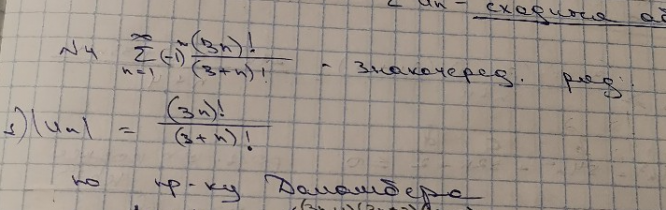 Σ Uₙ - сходится аб
№4 ∑_{n=1}^{∞} (-1)ⁿ (3n)! / (3+n)! - знакочеред. ряд.
1) |Uₙ| = (3n)! / (3+n)!
по пр-ку Даламбера